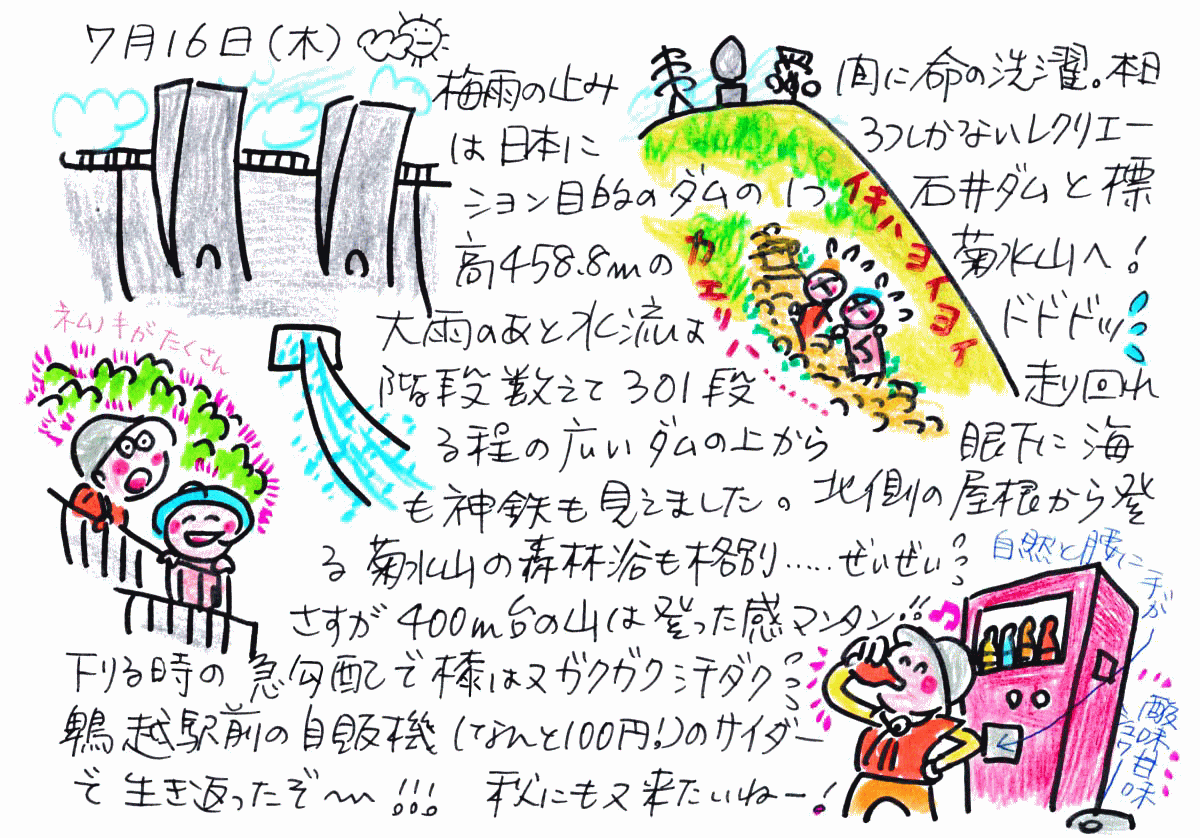 7月16日(木)
梅雨の止み間に命の洗濯。本日
は日本に3つしかないレクリエー
ション目的のダムの1つ石井ダムと標
高458.8mの菊水山へ!
大雨のあと水流はドドドッ
階段数えて301段走り回れ
る程の広いダムの上から眼下に海
も神鉄も見えました。北側の屋根から登
る菊水山の森林浴も格別……ぜいぜい
さすが400m台の山は登った感マンタン!!
下りる時の急勾配で膝は又ガクガク汗ダク
鵯越駅前の自販機(なんと100円!)のサイダー
で生き返ったぞ〜!!! 秋にも又来たいねー!
イキハヨイヨイ
カエリー
ネムノキがたくさん
自然と腰に手がー
酸味甘味